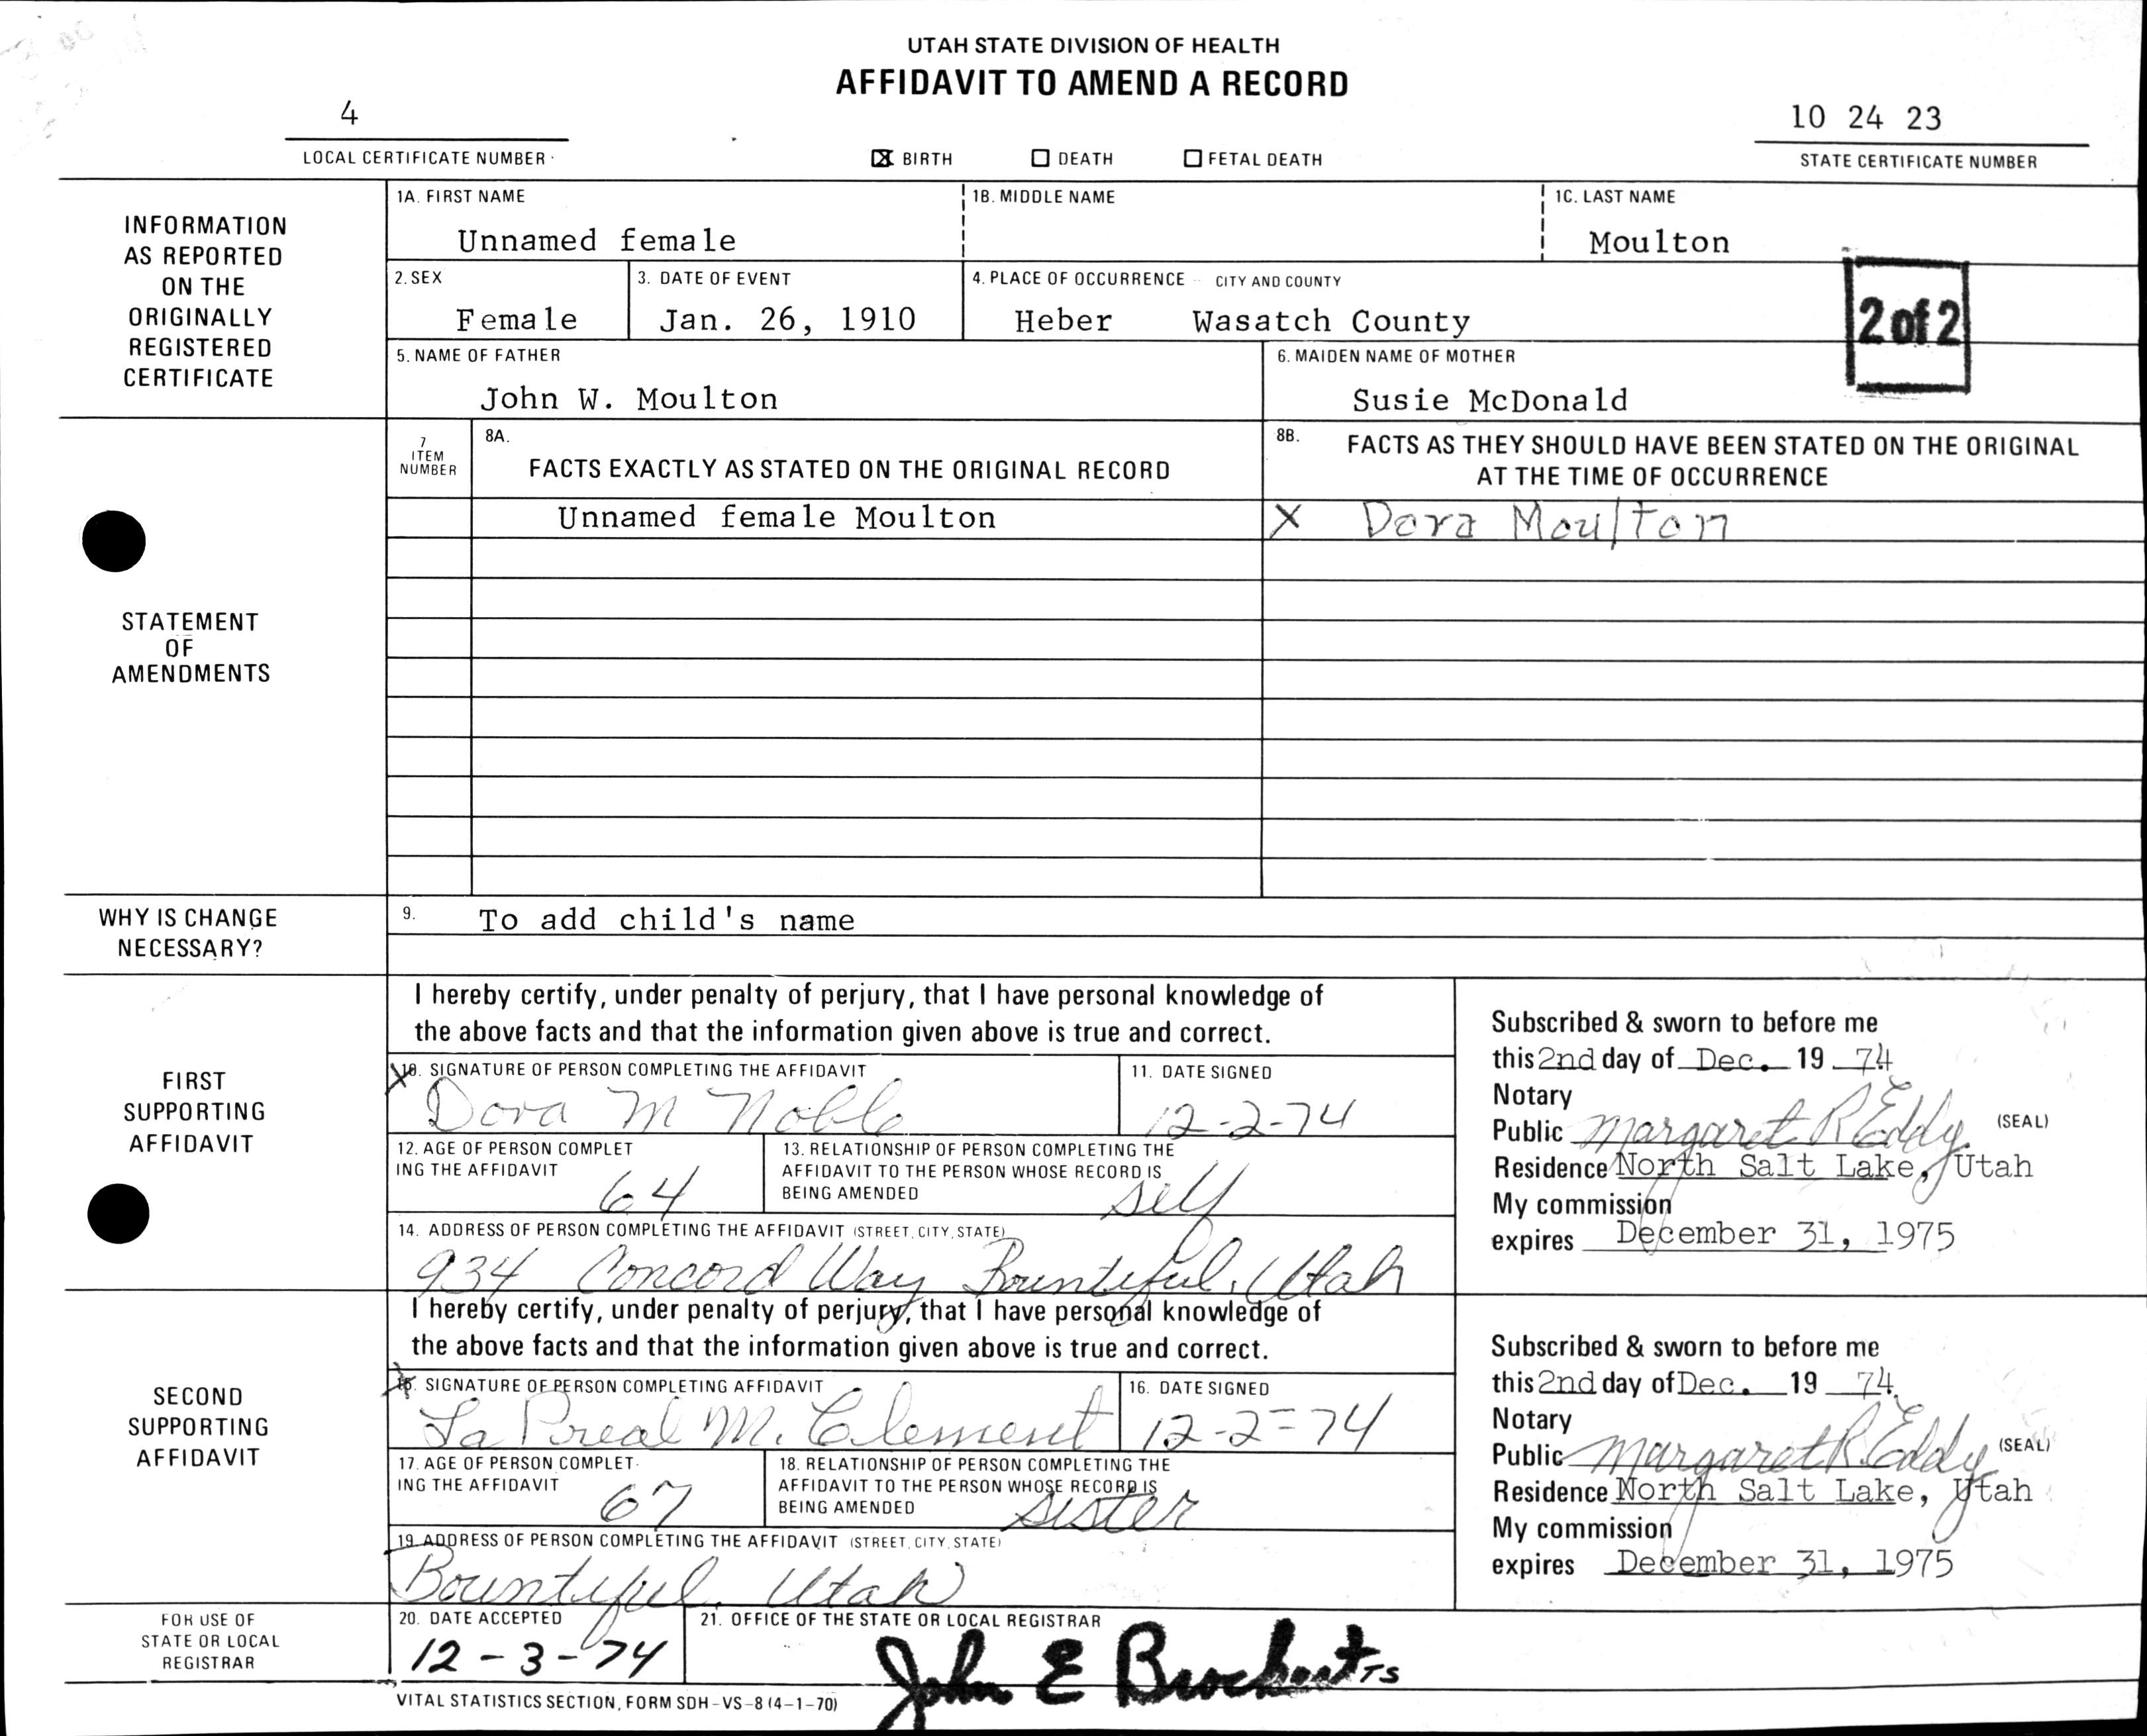 UTAH STATE DIVISION OF HEALTH
AFFIDAVIT TO AMEND A RECORD
4
10 24 23
LOCAL CERTIFICATE NUMBER
☒ BIRTH ☐ DEATH ☐ FETAL DEATH
STATE CERTIFICATE NUMBER
INFORMATION
AS REPORTED
ON THE
ORIGINALLY
REGISTERED
CERTIFICATE
1A. FIRST NAME
Unnamed female
1B. MIDDLE NAME
1C. LAST NAME
Moulton
2. SEX
Female
3. DATE OF EVENT
Jan. 26, 1910
4. PLACE OF OCCURRENCE - CITY AND COUNTY
Heber Wasatch County
2 of 2
5. NAME OF FATHER
John W. Moulton
6. MAIDEN NAME OF MOTHER
Susie McDonald
STATEMENT
OF
AMENDMENTS
7
ITEM
NUMBER
8A.
FACTS EXACTLY AS STATED ON THE ORIGINAL RECORD
8B. FACTS AS THEY SHOULD HAVE BEEN STATED ON THE ORIGINAL
AT THE TIME OF OCCURRENCE
Unnamed female Moulton
X Dora Moulton
WHY IS CHANGE
NECESSARY?
9. To add child's name
FIRST
SUPPORTING
AFFIDAVIT
I hereby certify, under penalty of perjury, that I have personal knowledge of
the above facts and that the information given above is true and correct.
X 10. SIGNATURE OF PERSON COMPLETING THE AFFIDAVIT
Dora M Noble
11. DATE SIGNED
12-2-74
12. AGE OF PERSON COMPLET
ING THE AFFIDAVIT
64
13. RELATIONSHIP OF PERSON COMPLETING THE
AFFIDAVIT TO THE PERSON WHOSE RECORD IS
BEING AMENDED
self
14. ADDRESS OF PERSON COMPLETING THE AFFIDAVIT (STREET, CITY, STATE)
934 Concord Way Bountiful, Utah
Subscribed & sworn to before me
this 2nd day of Dec. 19 74
Notary
Public Margaret R Eddy (SEAL)
Residence North Salt Lake, Utah
My commission
expires December 31, 1975
SECOND
SUPPORTING
AFFIDAVIT
I hereby certify, under penalty of perjury, that I have personal knowledge of
the above facts and that the information given above is true and correct.
X 15. SIGNATURE OF PERSON COMPLETING AFFIDAVIT
La Preal M. Clement
16. DATE SIGNED
12-2-74
17. AGE OF PERSON COMPLET-
ING THE AFFIDAVIT
67
18. RELATIONSHIP OF PERSON COMPLETING THE
AFFIDAVIT TO THE PERSON WHOSE RECORD IS
BEING AMENDED
sister
19. ADDRESS OF PERSON COMPLETING THE AFFIDAVIT (STREET, CITY, STATE)
Bountiful, Utah
Subscribed & sworn to before me
this 2nd day of Dec. 19 74
Notary
Public Margaret R. Eddy (SEAL)
Residence North Salt Lake, Utah
My commission
expires December 31, 1975
FOR USE OF
STATE OR LOCAL
REGISTRAR
20. DATE ACCEPTED
12-3-74
21. OFFICE OF THE STATE OR LOCAL REGISTRAR
John E Brockert TS
VITAL STATISTICS SECTION, FORM SDH-VS-8 (4-1-70)